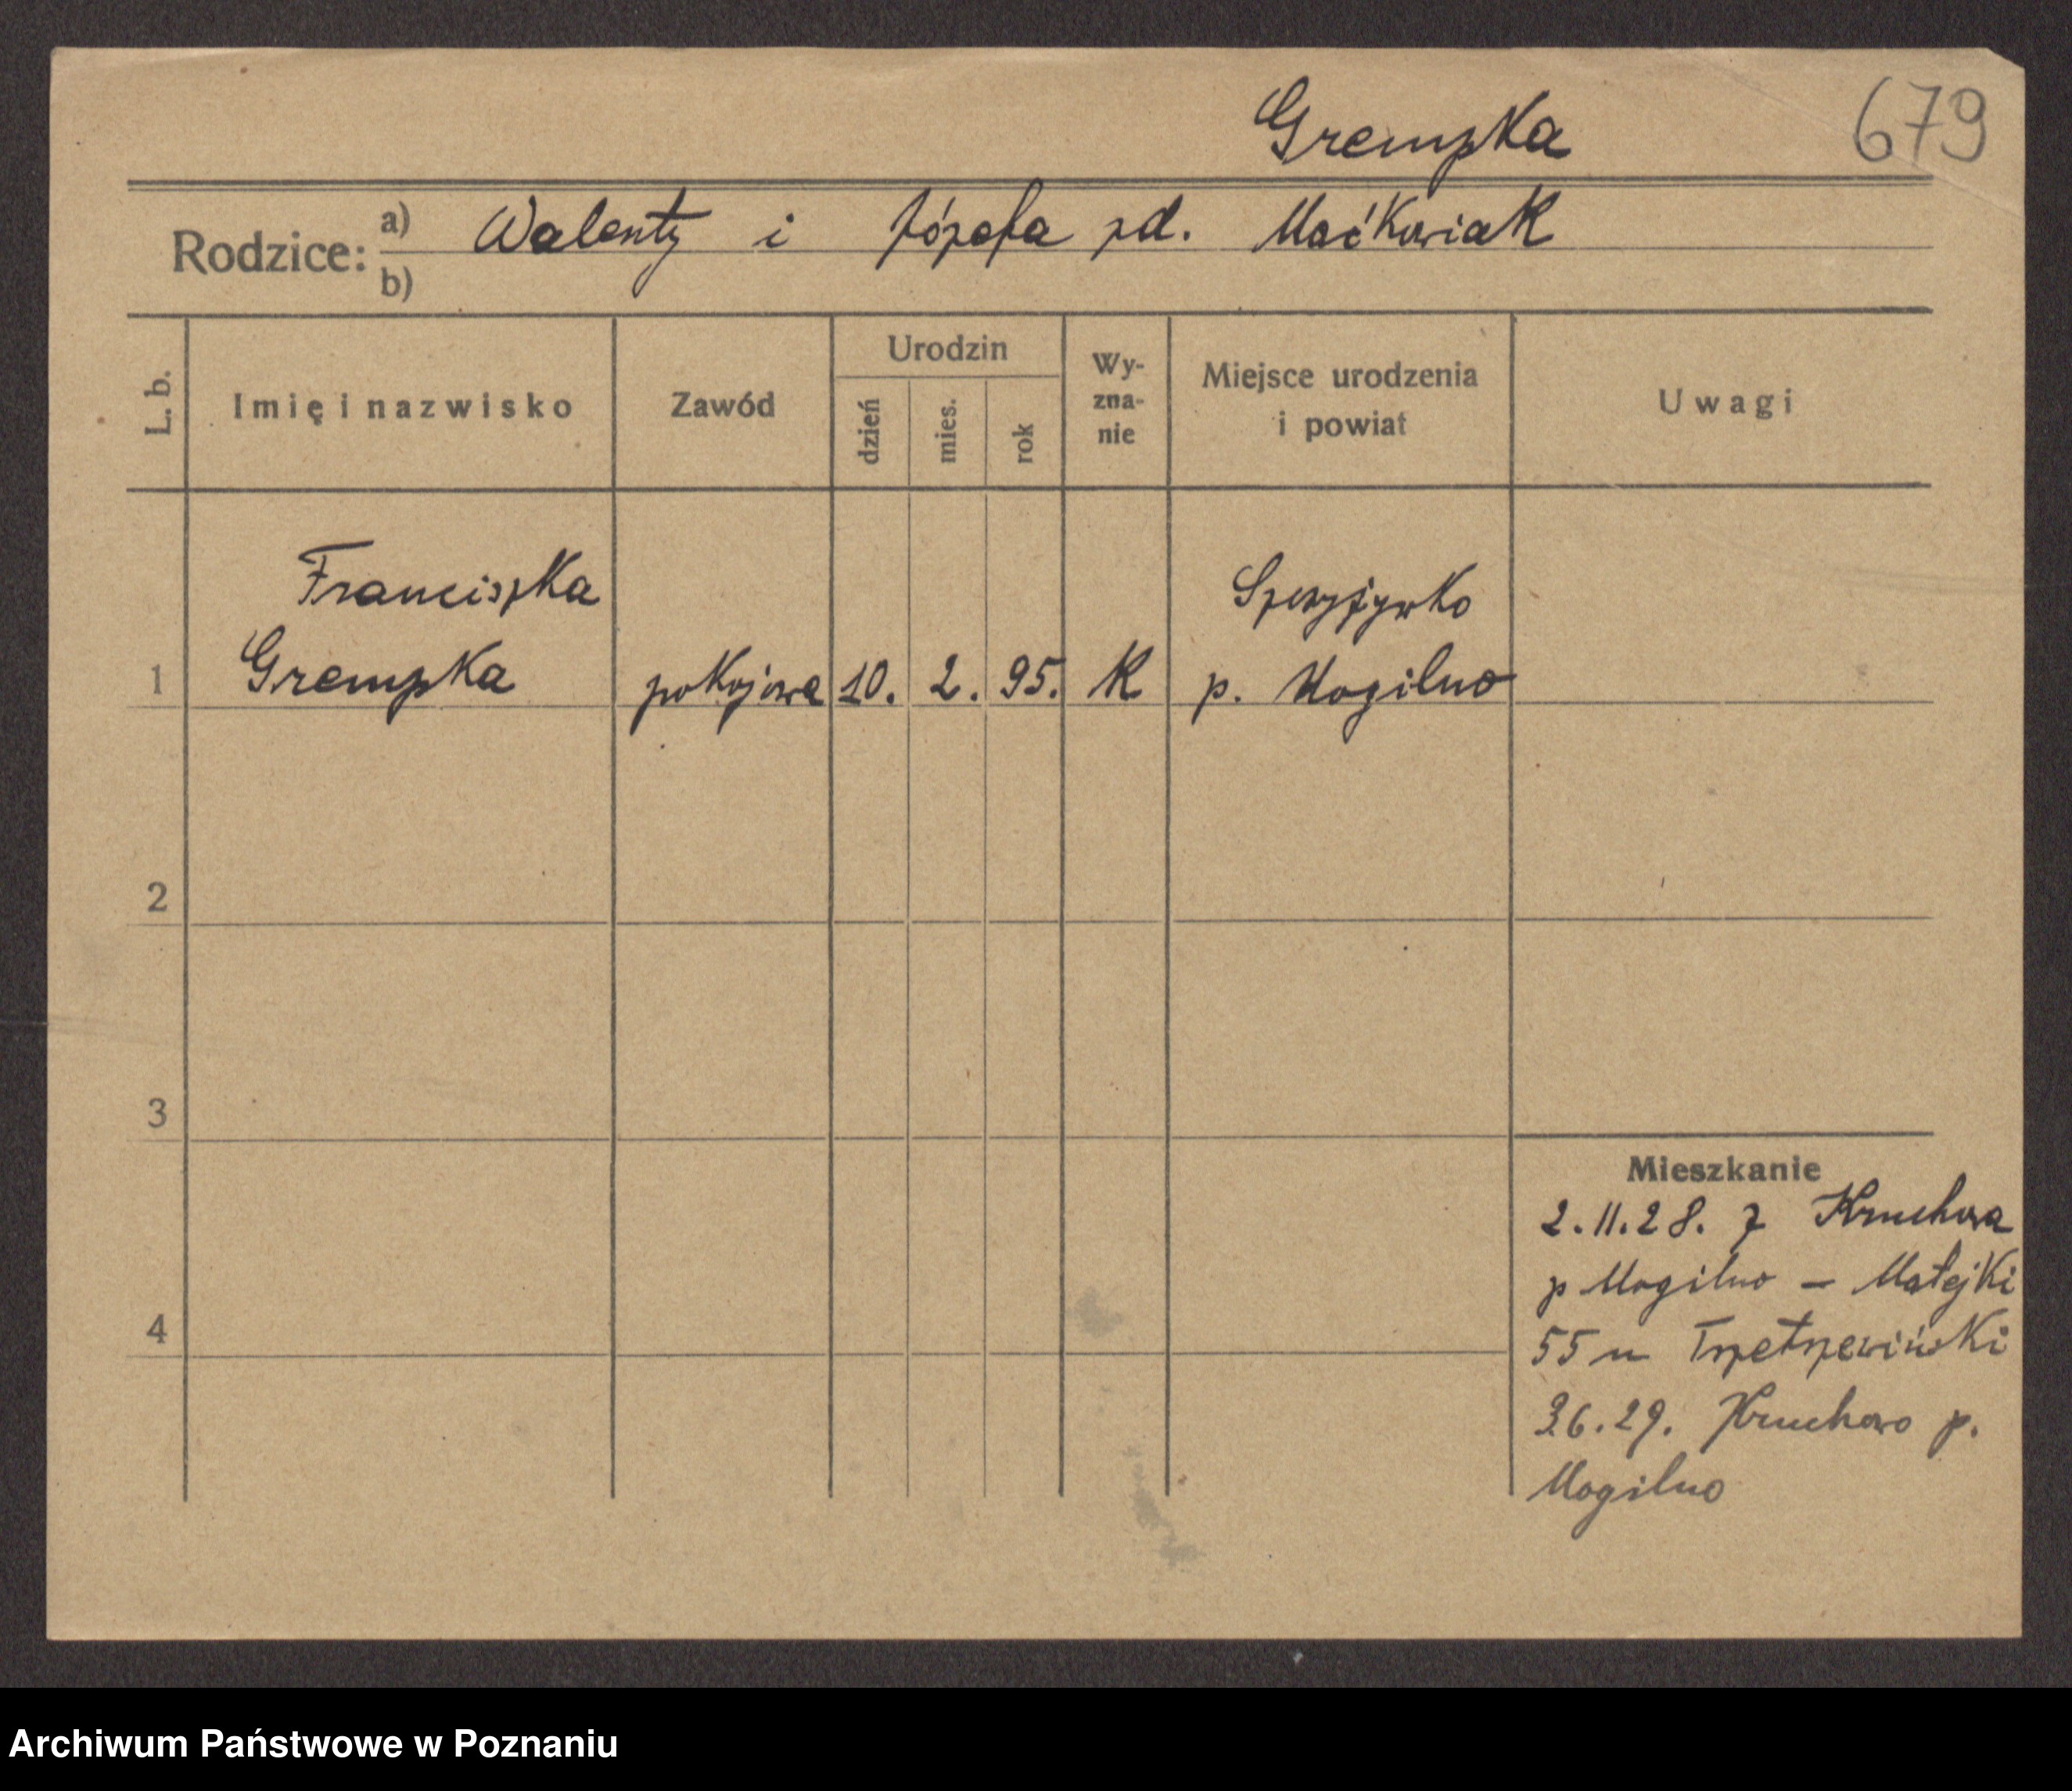 Grempka
679
Rodzice: a) Walenty i Józefa zd. Maćkowiak
b)
L. b.
Imię i nazwisko
Zawód
Urodzin
dzień
mies.
rok
Wy-
zna-
nie
Miejsce urodzenia
i powiat
Uwagi
Franciszka
1 Grempka pokojowa 10. 2. 95. K p. Mogilno
2
3
4
Mieszkanie
2.11.28. z Kruchowa
p Mogilno – Matejki
55 u
Kruchowo p.
Mogilno
Archiwum Państwowe w Poznaniu